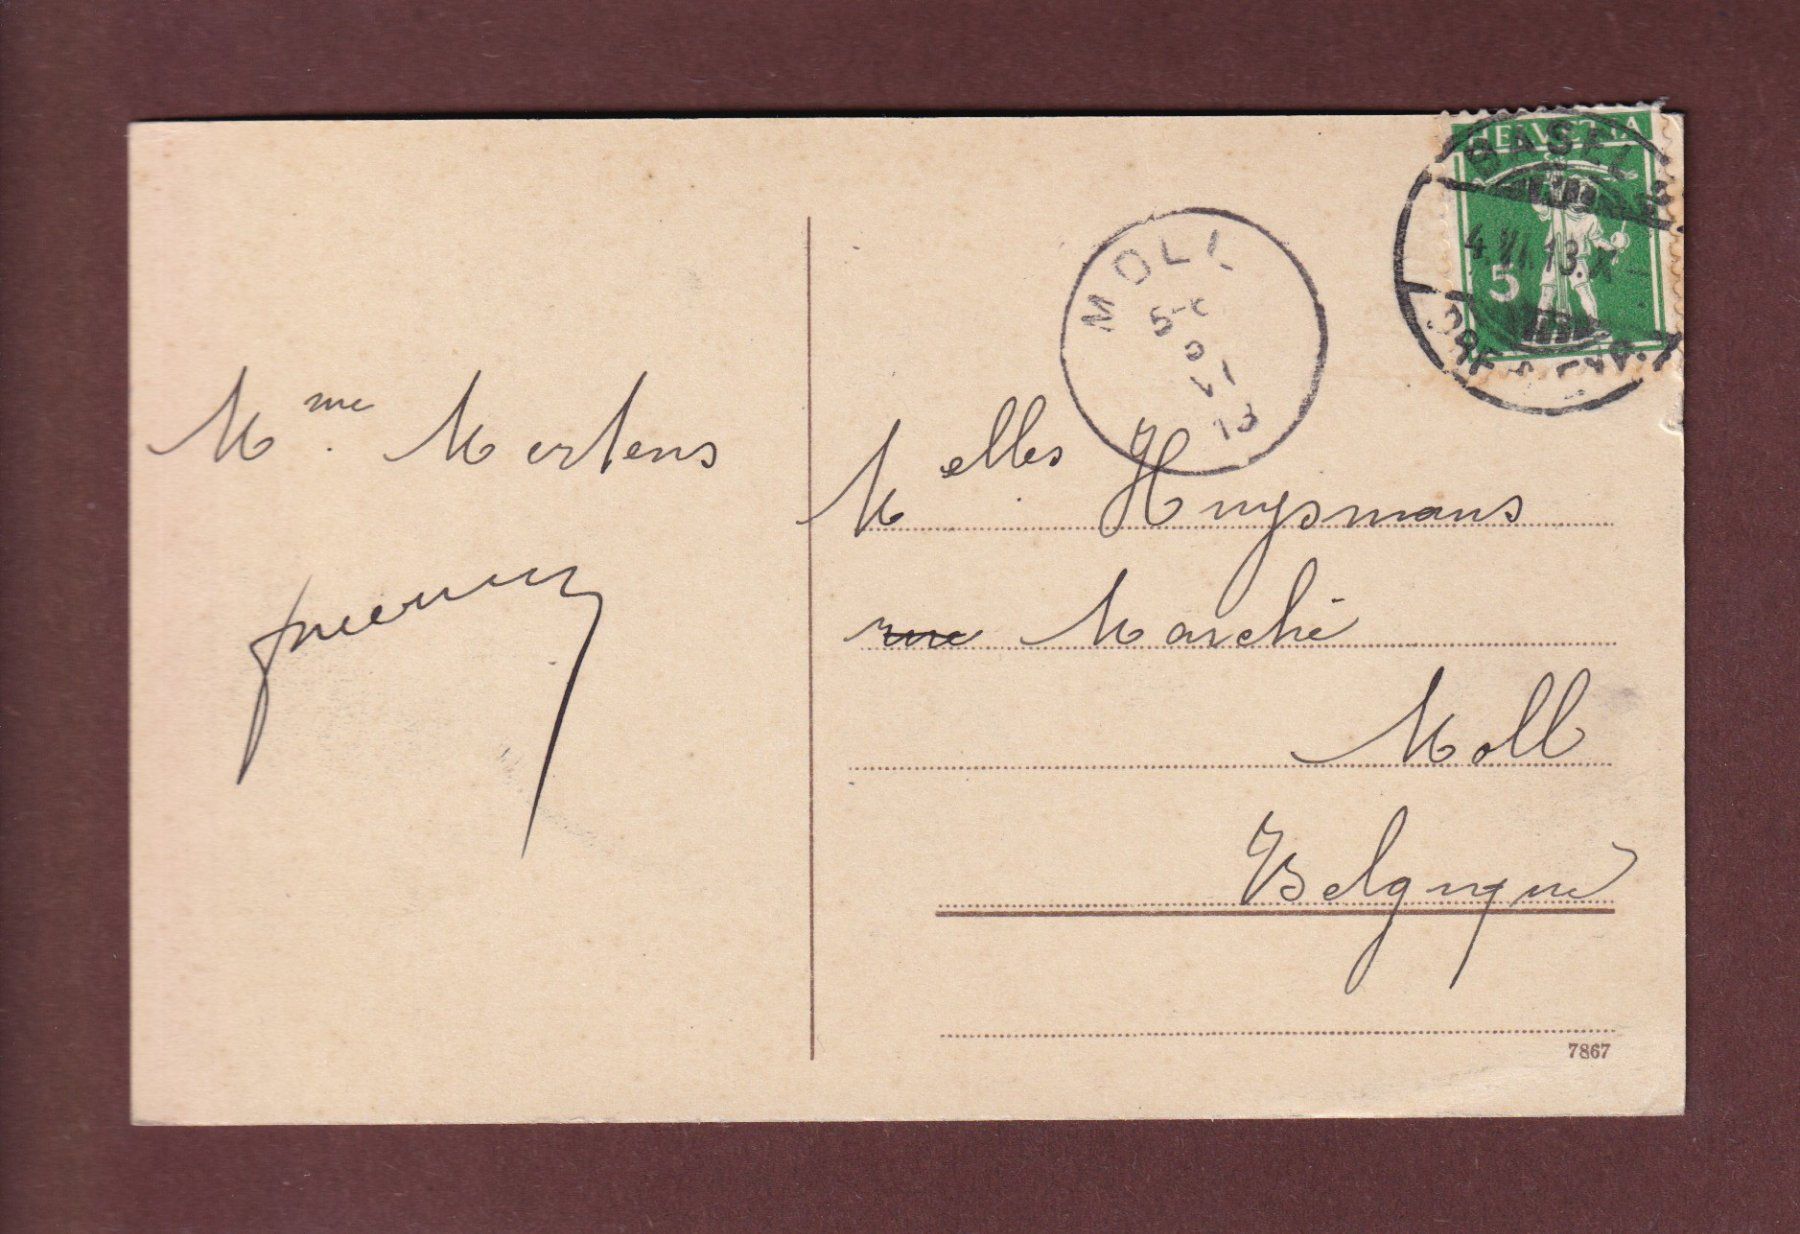 HELVETIA
BASEL 2
4.VI.13.X-
5
BRF. EXP.
MOLL
5-
VI
13
Mme. Mertens
Melles Huysmans
rue Marché
Moll
Belgique
7867